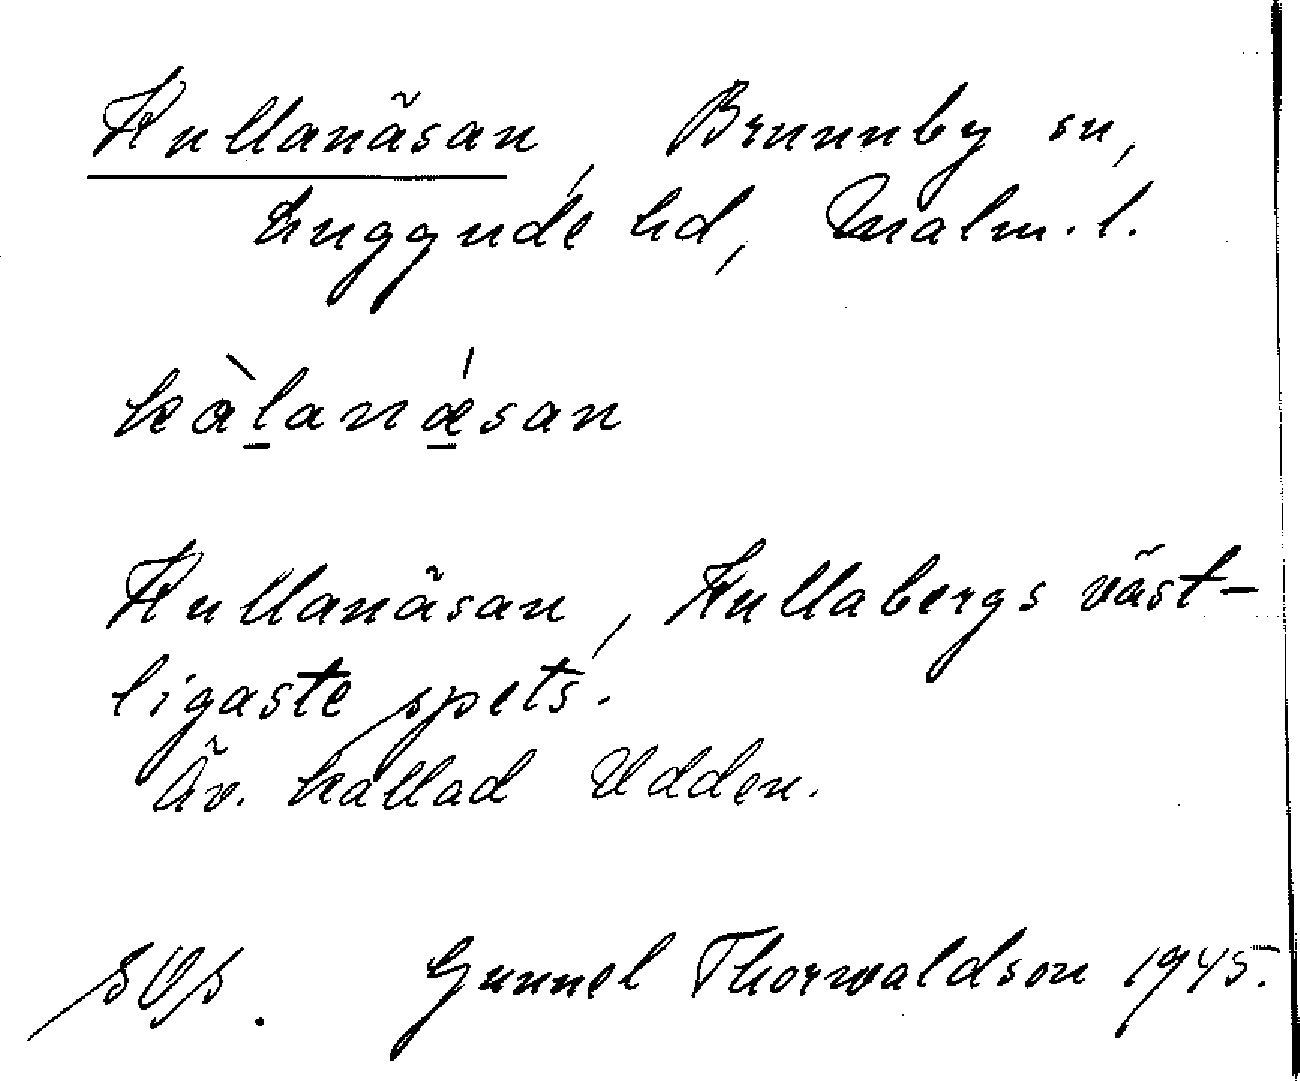 Kullanäsan, Brunnby sn,
Luggude hd, Malm. l.
kàlanǽsan
Kullanäsan, Kullabergs väst-
ligaste spets.
Äv. kallad Udden.
Gunnel Thorwaldson 1945.